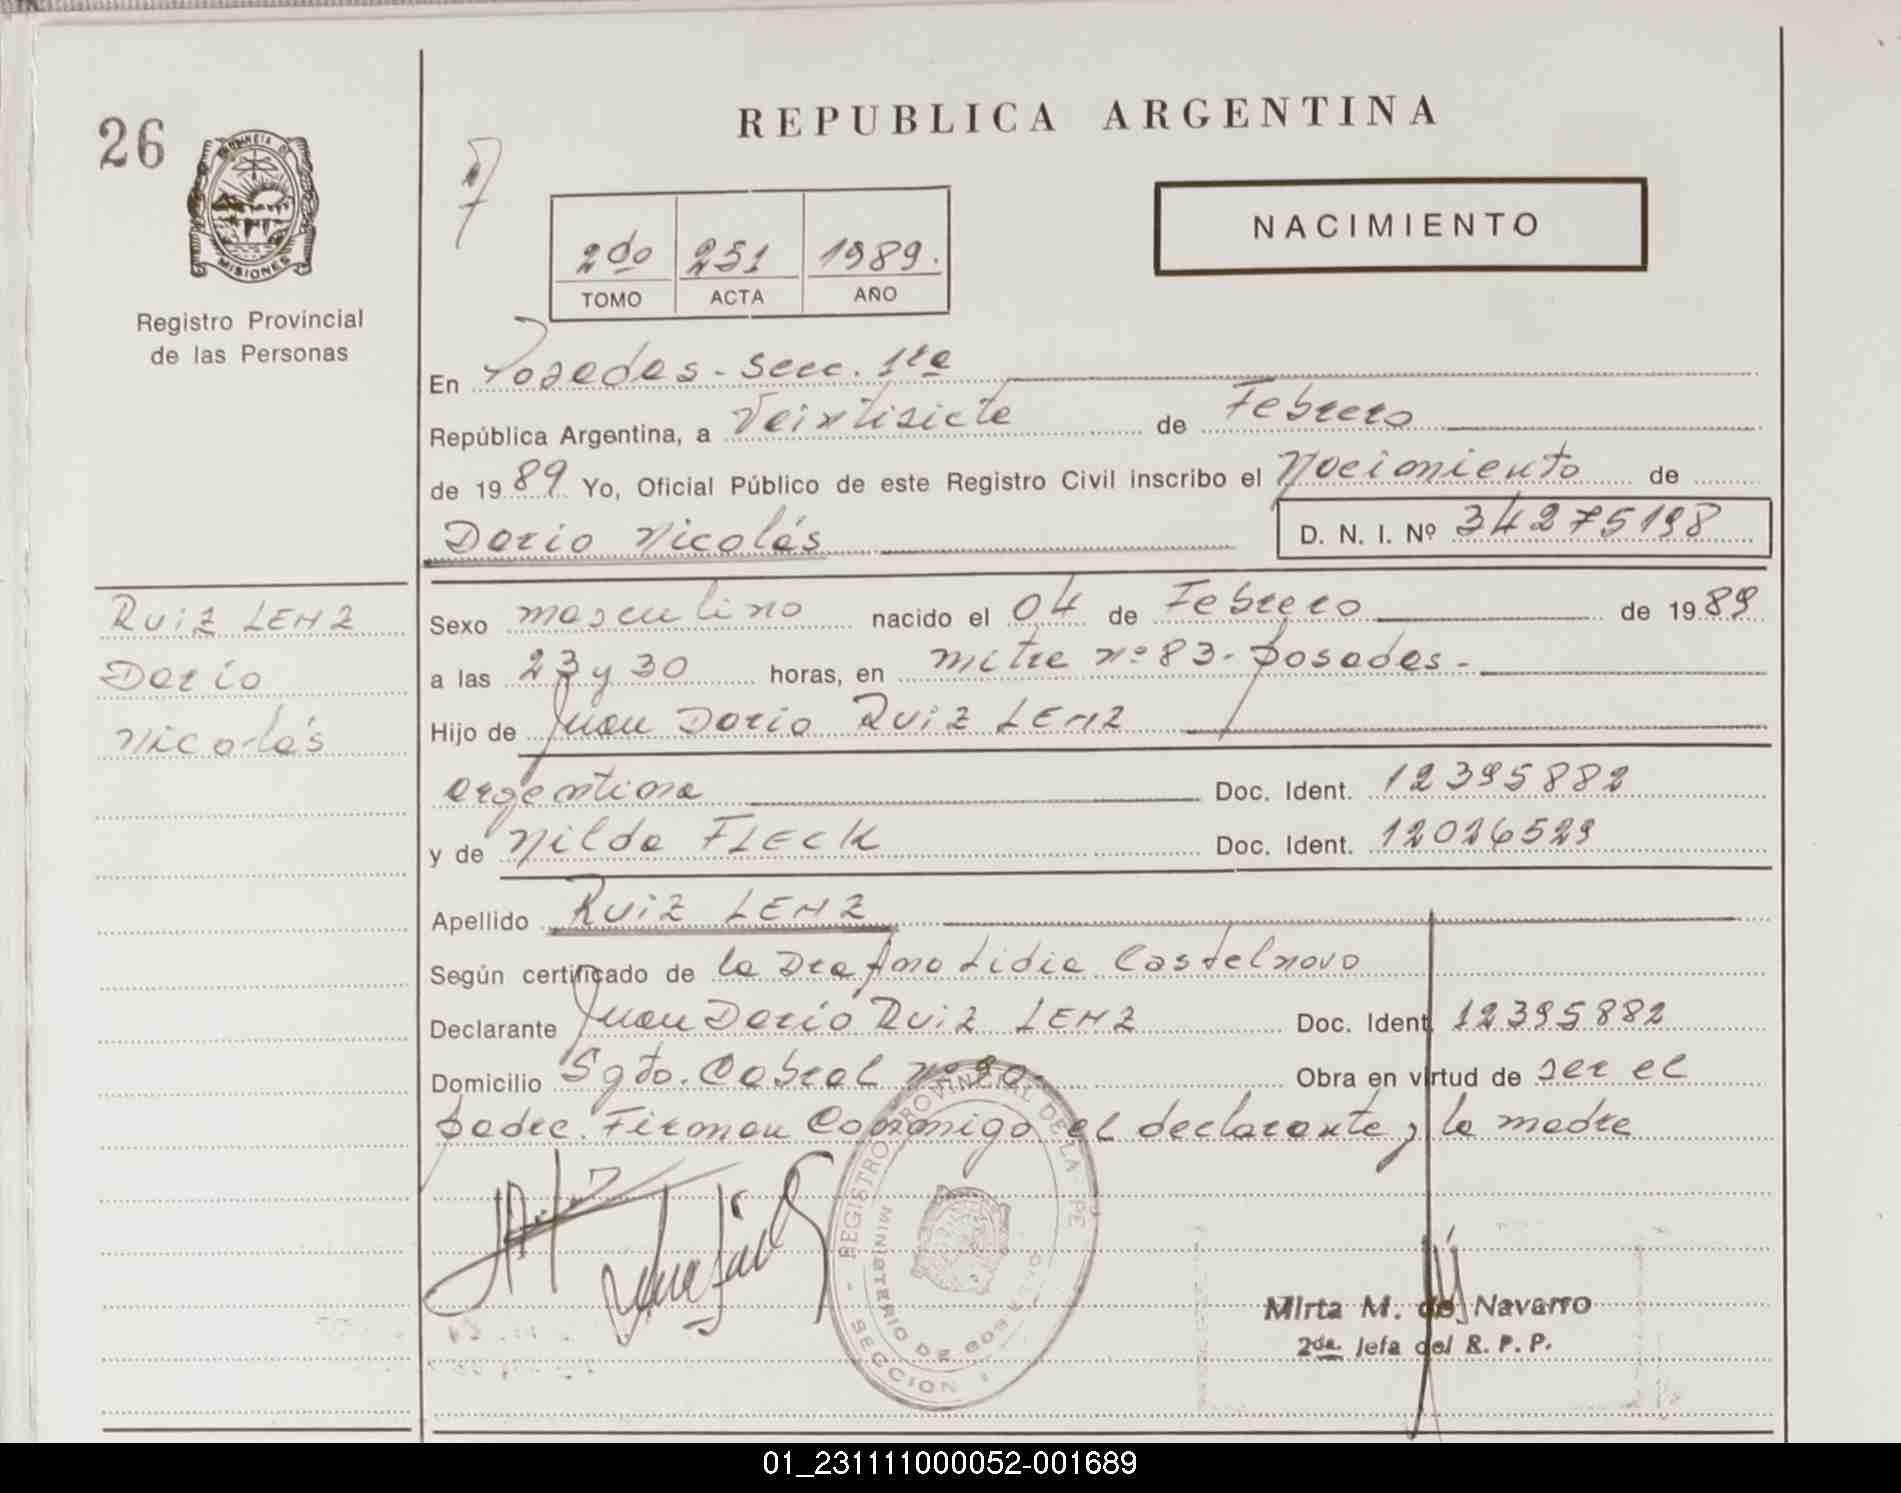 26
REPUBLICA ARGENTINA
NACIMIENTO
2do 251 1989.
TOMO ACTA AÑO
PROVINCIA DE MISIONES
Registro Provincial
de las Personas
En Posadas - Secc. 1ra
República Argentina, a Veintisiete de Febrero
de 1989 Yo, Oficial Público de este Registro Civil inscribo el Nacimiento de
Dario Nicolás
D. N. I. Nº 34275198
RUIZ LENZ
Dario
Nicolás
Sexo masculino nacido el 04 de Febrero de 1989
a las 23 y 30 horas, en mitre nº 83 - Posadas -
Hijo de Juan Dario RUIZ LENZ
argentina Doc. Ident. 12395882
y de Nilda FLECK Doc. Ident. 12026529
Apellido RUIZ LENZ
Según certificado de la Dra Ana Lidia Castelnovo
Declarante Juan Dario RUIZ LENZ Doc. Ident. 12395882
Domicilio Sgto. Cabral nº 20 - Obra en virtud de ser el
padre. Firman Conmigo el declarante y la madre
REGISTRO PROVINCIAL DE LA PE
MINISTERIO DE GOBIERNO
SECCION 1
Mirta M. de Navarro
2da. Jefa del R. P. P.
01_231111000052-001689